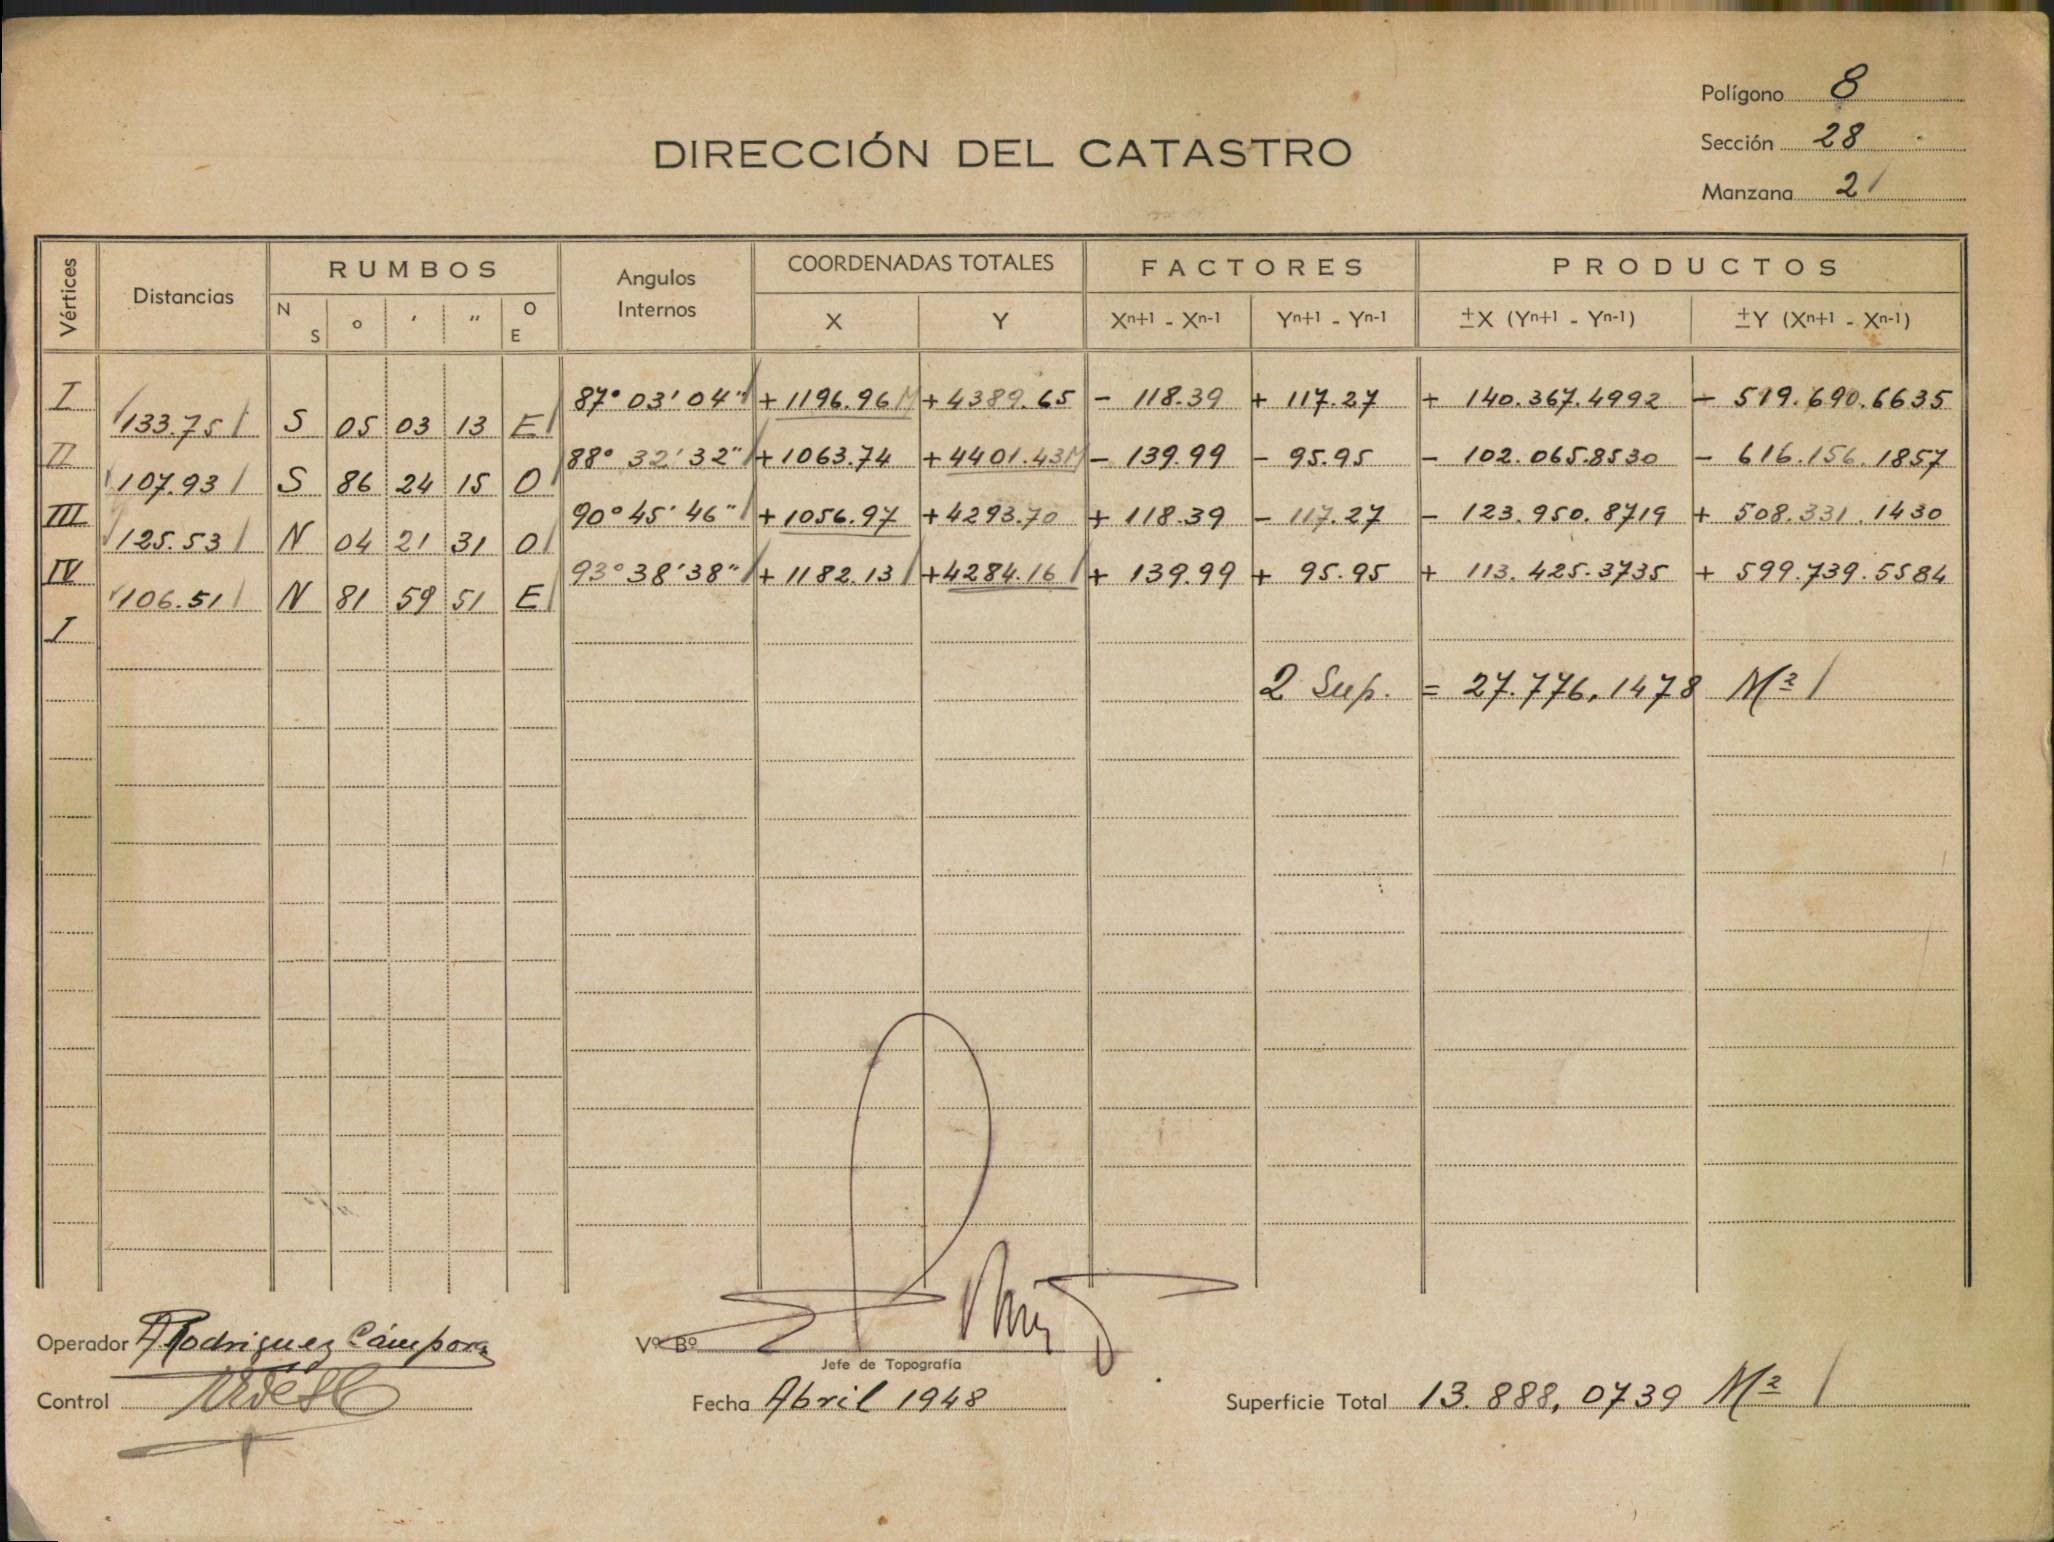 Polígono 8
DIRECCIÓN DEL CATASTRO
Sección 28
Manzana 2
Vértices Distancias RUMBOS Angulos Internos COORDENADAS TOTALES FACTORES PRODUCTOS
N S ° ' " O E X Y Xn+1 - Xn-1 Yn+1 - Yn-1 ±X (Yn+1 - Yn-1) ±Y (Xn+1 - Xn-1)
I 87° 03' 04" + 1196.96 + 4389.65 - 118.39 + 117.27 + 140.367.4992 - 519.690.6635
133.75 S 05 03 13 E
II 88° 32' 32" + 1063.74 + 4401.43 - 139.99 - 95.95 - 102.065.8530 - 616.156.1857
107.93 S 86 24 15 O
III 90° 45' 46" + 1056.97 + 4293.70 + 118.39 - 117.27 - 123.950.8719 + 508.331.1430
125.53 N 04 21 31 O
IV 93° 38' 38" + 1182.13 + 4284.16 + 139.99 + 95.95 + 113.425.3735 + 599.739.5584
106.51 N 81 59 51 E
I
2 Sup. = 27.776,1478 M²
Operador A Rodriguez Cámpora
Vº Bº
Jefe de Topografía
Control
Fecha Abril 1948
Superficie Total 13.888,0739 M²